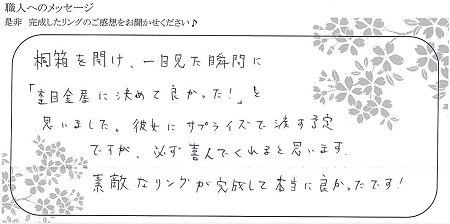 職人へのメッセージ
是非 完成したリングのご感想をお聞かせください♪
桐箱を開け、一目見た瞬間に
「杢目金屋に決めて良かった!」と
思いました。彼女にサプライズで渡す予定
ですが、必ず喜んでくれると思います。
素敵なリングが完成して本当に良かったです!